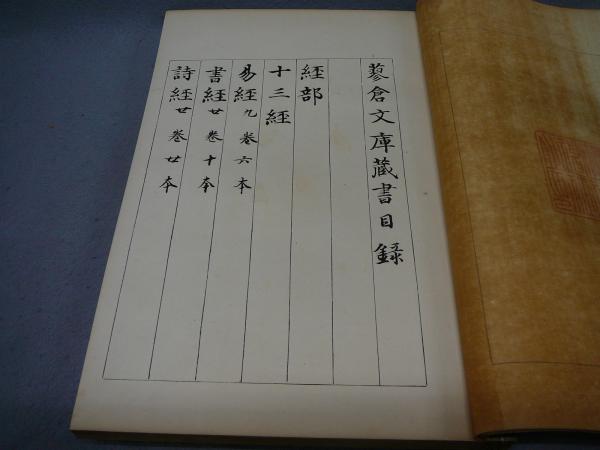 蓼倉文庫藏書目錄
經部
十三經
易經九卷六本
書經廿卷十本
詩經廿卷廿本